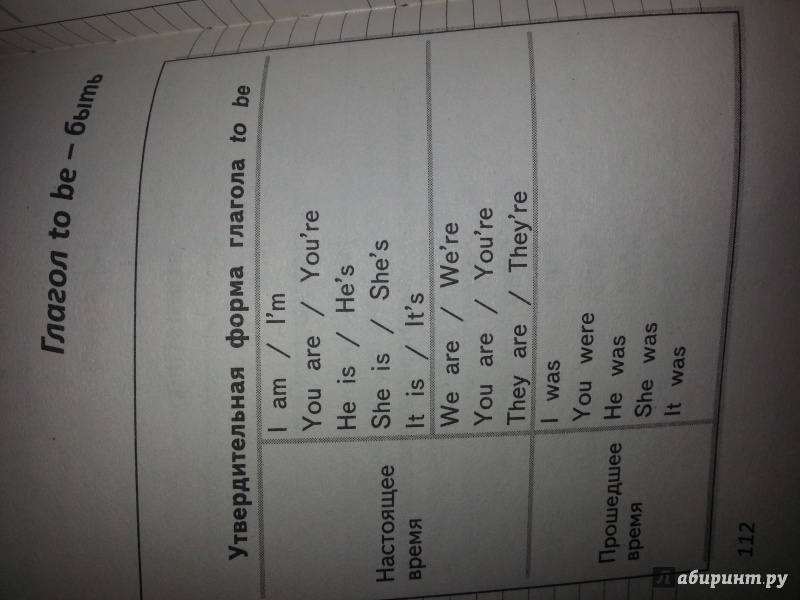 Глагол to be – быть
Утвердительная форма глагола to be
Настоящее
время
I am / I'm
You are / You're
He is / He's
She is / She's
It is / It's
We are / We're
You are / You're
They are / They're
Прошедшее
время
I was
You were
He was
She was
It was
112
Лабиринт.ру